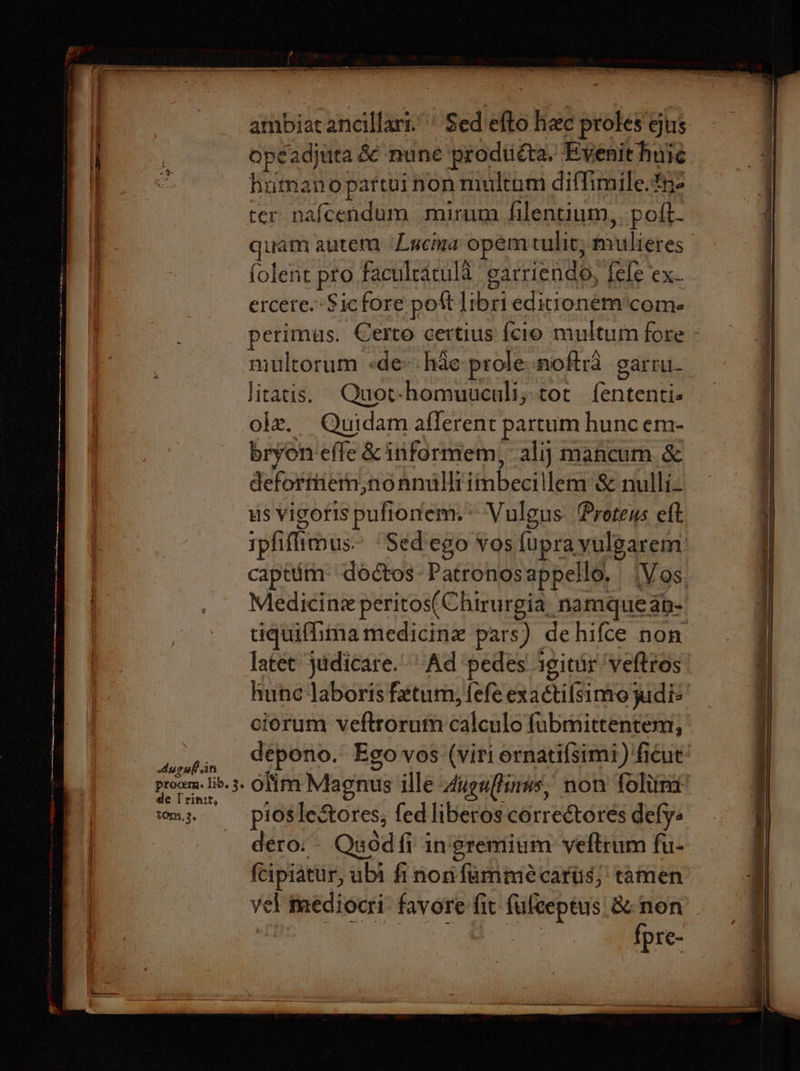 ambiat ancillari. Sed eſto hæc proles ejus
ope adjuta & nunc producta. Evenit huic
humano partui non multum diſſimile. In-
ter naſcendum mirum ſilentium, poſt-
quam autem Lucina opem tulit, mulieres
ſolent pro facultatulâ garriendo, ſeſe ex-
ercere. Sic fore poſt libri editionem com-
perimus. Certo certius ſcio multum fore
multorum de hâc prole noſtrâ garru-
litatis. Quot homuuculi, tot ſententi-
olæ. Quidam aſſerent partum hunc em-
bryon eſſe & informem, alij mancum &
deformem, nonnulli imbecillem & nulli-
us vigoris puſionem. Vulgus Proteus eſt
ipſiſſimus. Sed ego vos ſupra vulgarem
captúm doctos Patronos appello. Vos
Medicinæ peritos (Chirurgia namque an-
tiquiſſima medicinæ pars) de hiſce non
latet judicare. Ad pedes igitúr veſtros
hunc laboris fætum, ſeſe exactiſsimo judi-
ciorum veſtrorum calculo ſubmittentem,
depono. Ego vos (viri ornatiſsimi) ſicut
Auguſt. in
prooem. lib. 3. olim Magnus ille Auguſtinus, non ſolùm
de Trinit,
tom. 3. pios lectores, ſed liberos correctores deſy-
dero. Quòd ſi in gremium veſtrum ſu-
ſcipiatur, ubi ſi non ſummè carus, tamen
vel mediocri favore ſit ſuſceptus & non
ſpre-